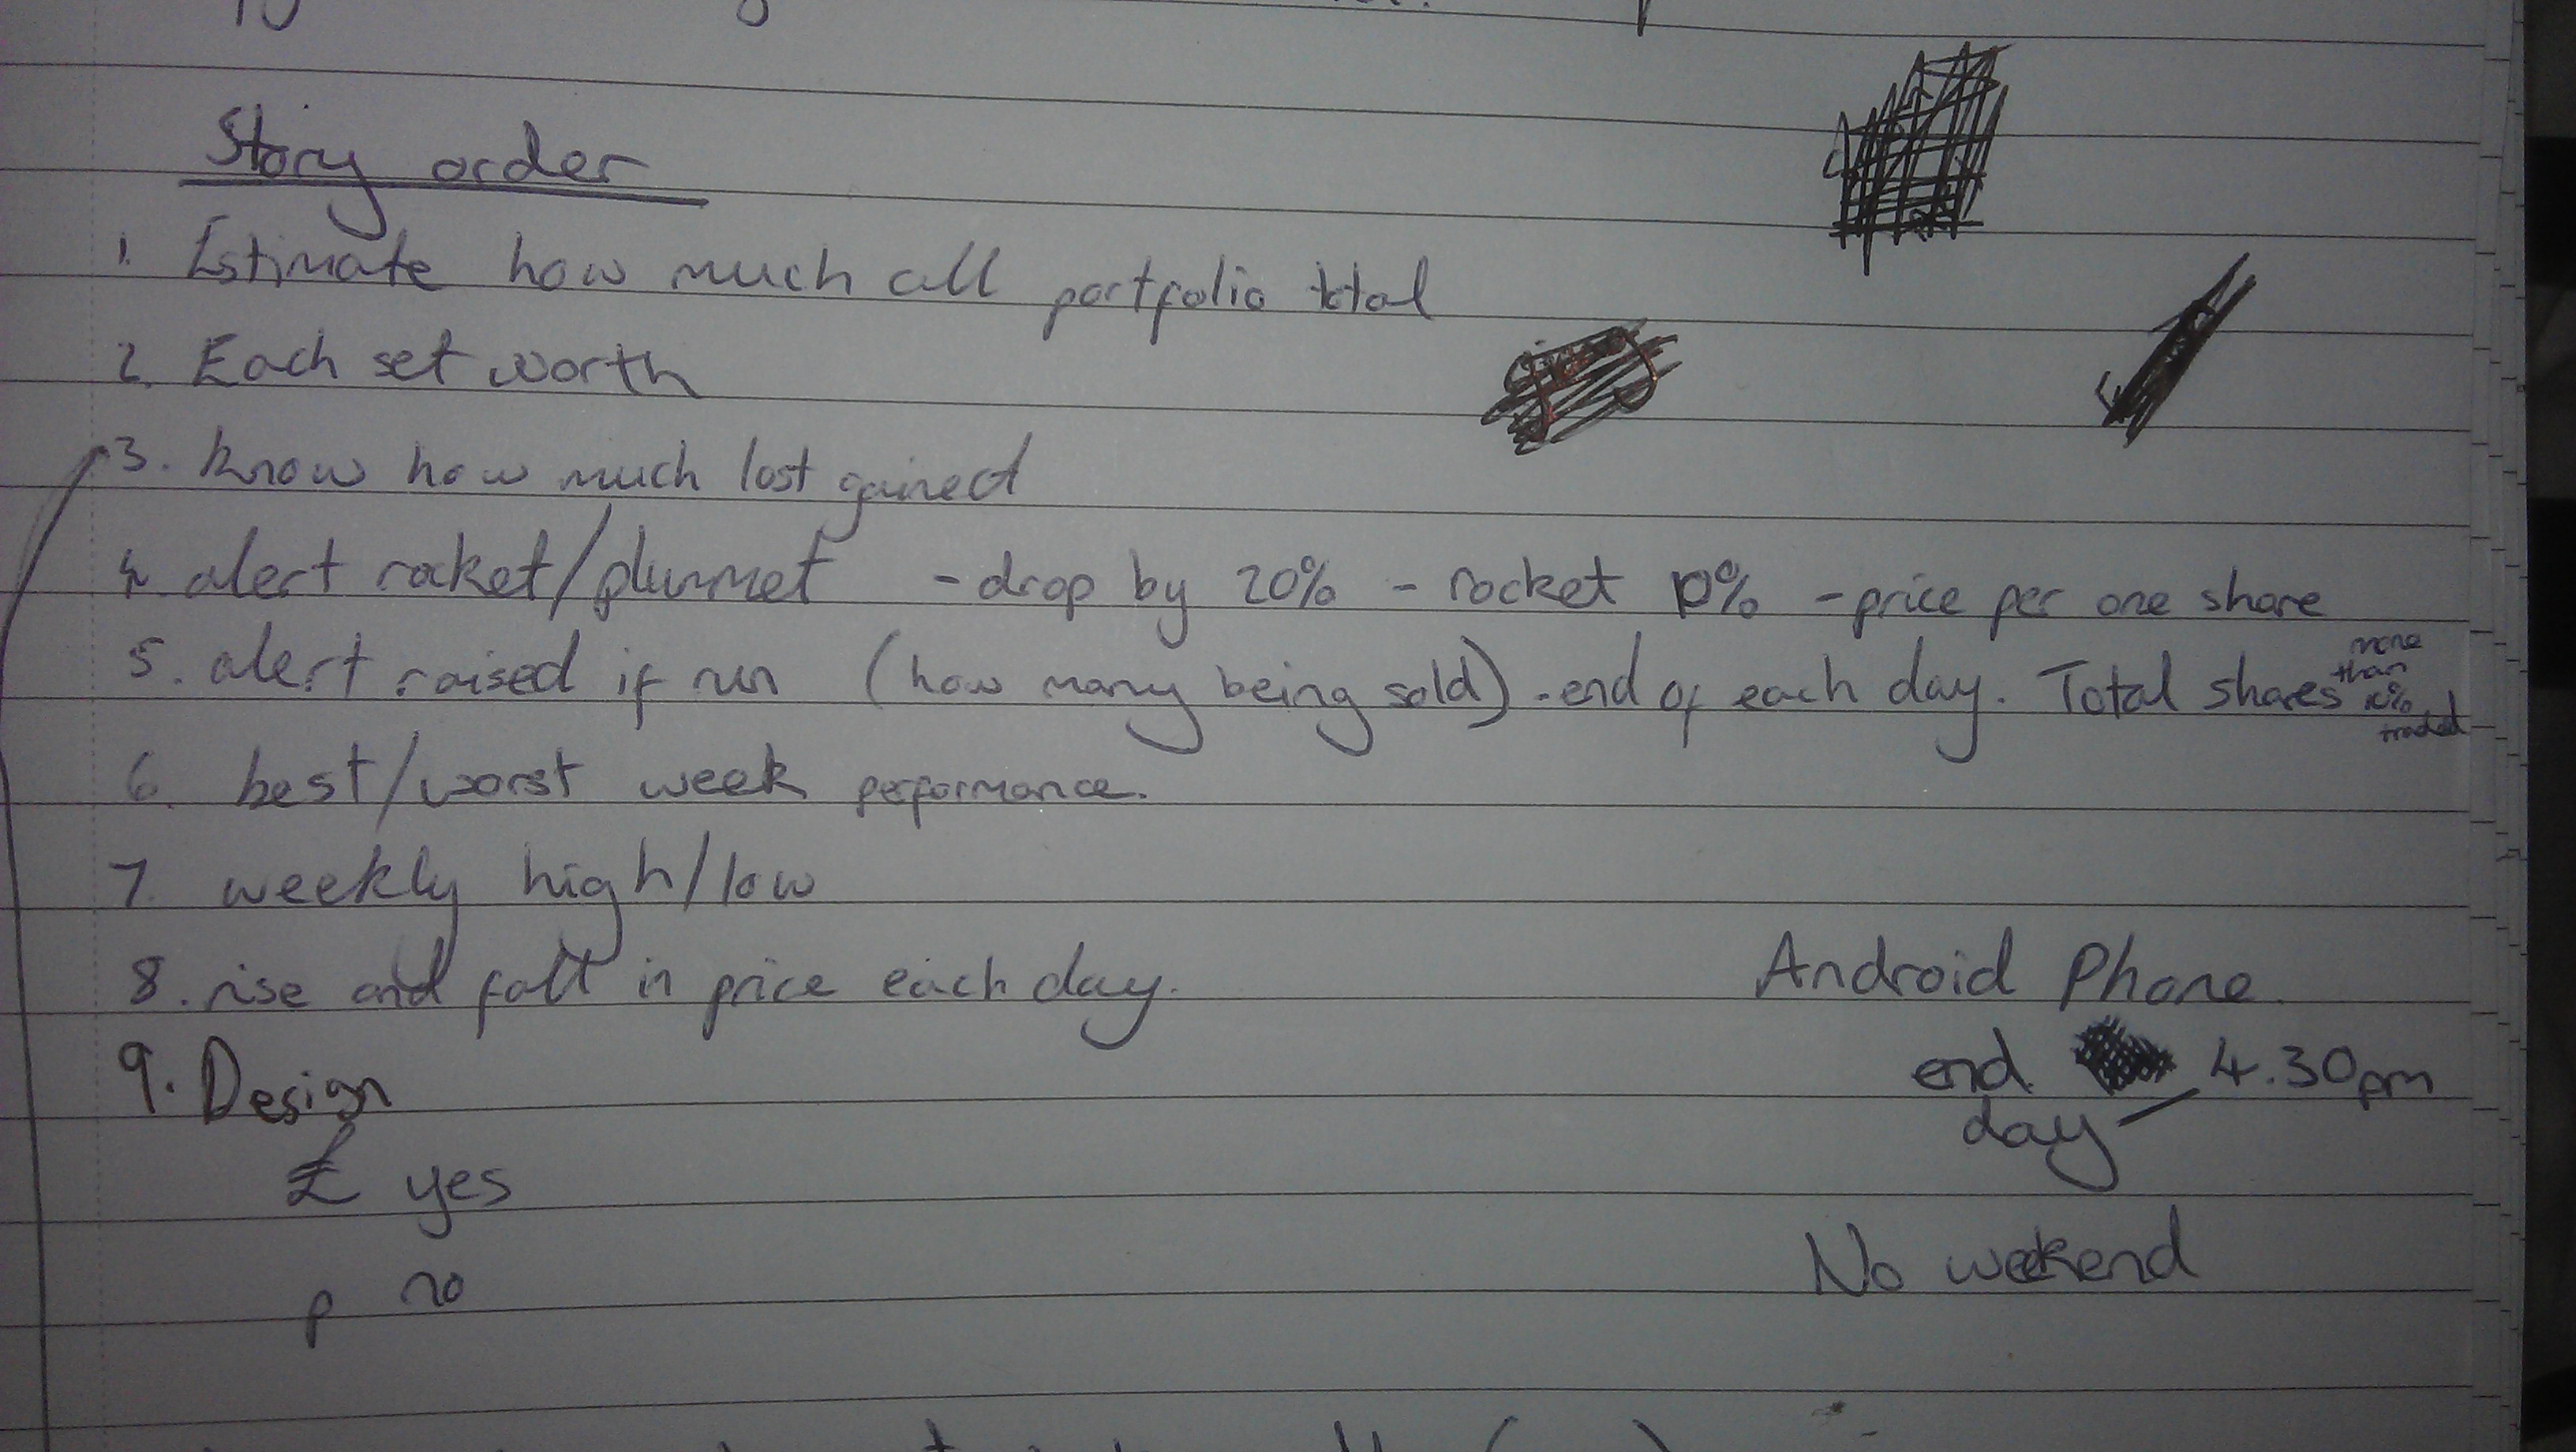 Story order
1. Estimate how much all portfolio total
2. Each set worth
3. know how much lost gained
4. alert rocket/plummet - drop by 20% - rocket 10% - price per one share
5. alert raised if run (how many being sold) - end of each day. Total shares more than 10% traded
6. best/worst week performance.
7. weekly high/low
8. rise and fall in price each day.
Android Phone
9. Design
end day - 4.30pm
£ yes
No weekend
p no